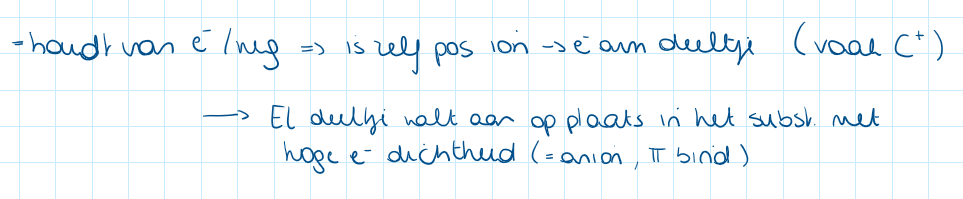 - houdt van e⁻ / neg => is zelf pos ion -> e⁻ arm deeltje (vaak C⁺)
→ El deeltje valt aan op plaats in het subst. met
hoge e⁻ dichtheid (= anion, π bind)